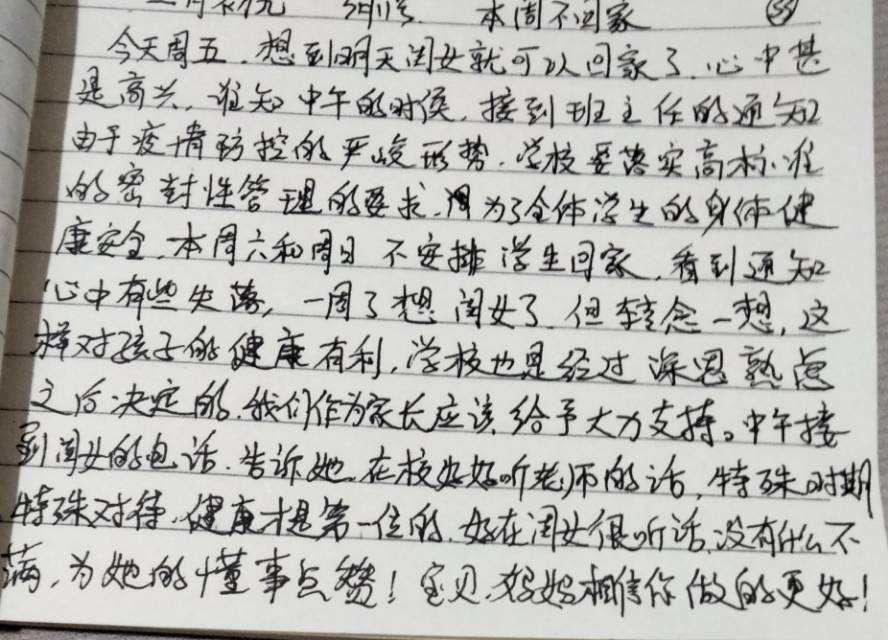 本周不回家
今天周五,想到明天闺女就可以回家了,心中甚
是高兴,谁知中午的时侯,接到班主任的通知
由于疫情防控的严峻形势,学校要落实高标准
的密封性管理的要求,因为了全体学生的身体健
康安全,本周六和周日不安排学生回家,看到通知
心中有些失落,一周了想闺女了,但转念一想,这
样对孩子的健康有利,学校也是经过深思熟虑
之后决定的,我们作为家长应该给予大力支持。中午接
到闺女的电话,告诉她在校好好听老师的话,特殊时期
特殊对待,健康才是第一位的,好在闺女很听话,没有什么不
满,为她的懂事点赞!宝贝,妈妈相信你做的更好!